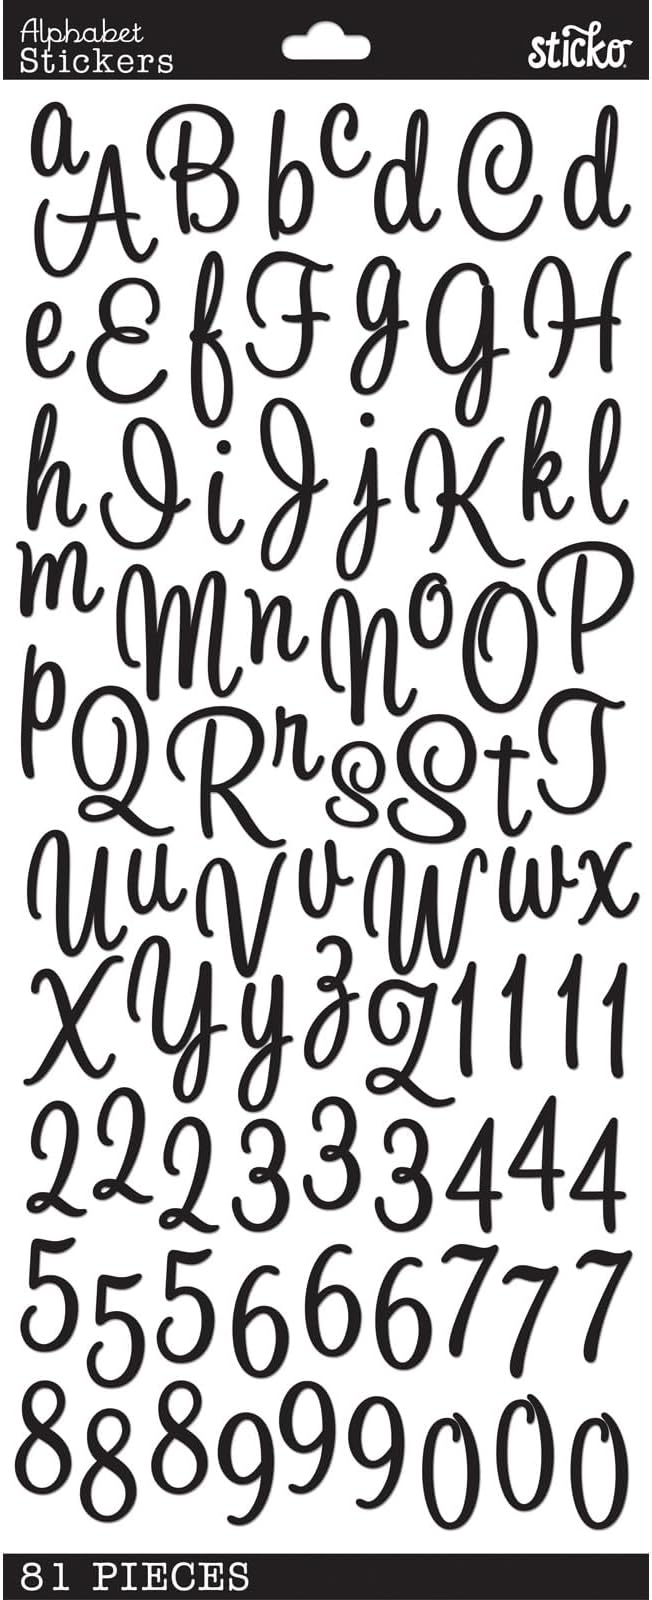 Alphabet
Stickers
sticko
a A B b c d C d
e E f F g G H
h I i J j K k l
m M n N o O P
p Q R r s S t T
U u V v W w x
X Y y z Z 1 1 1 1
2 2 2 3 3 3 4 4 4
5 5 5 6 6 6 7 7 7
8 8 8 9 9 9 0 0 0
81 PIECES